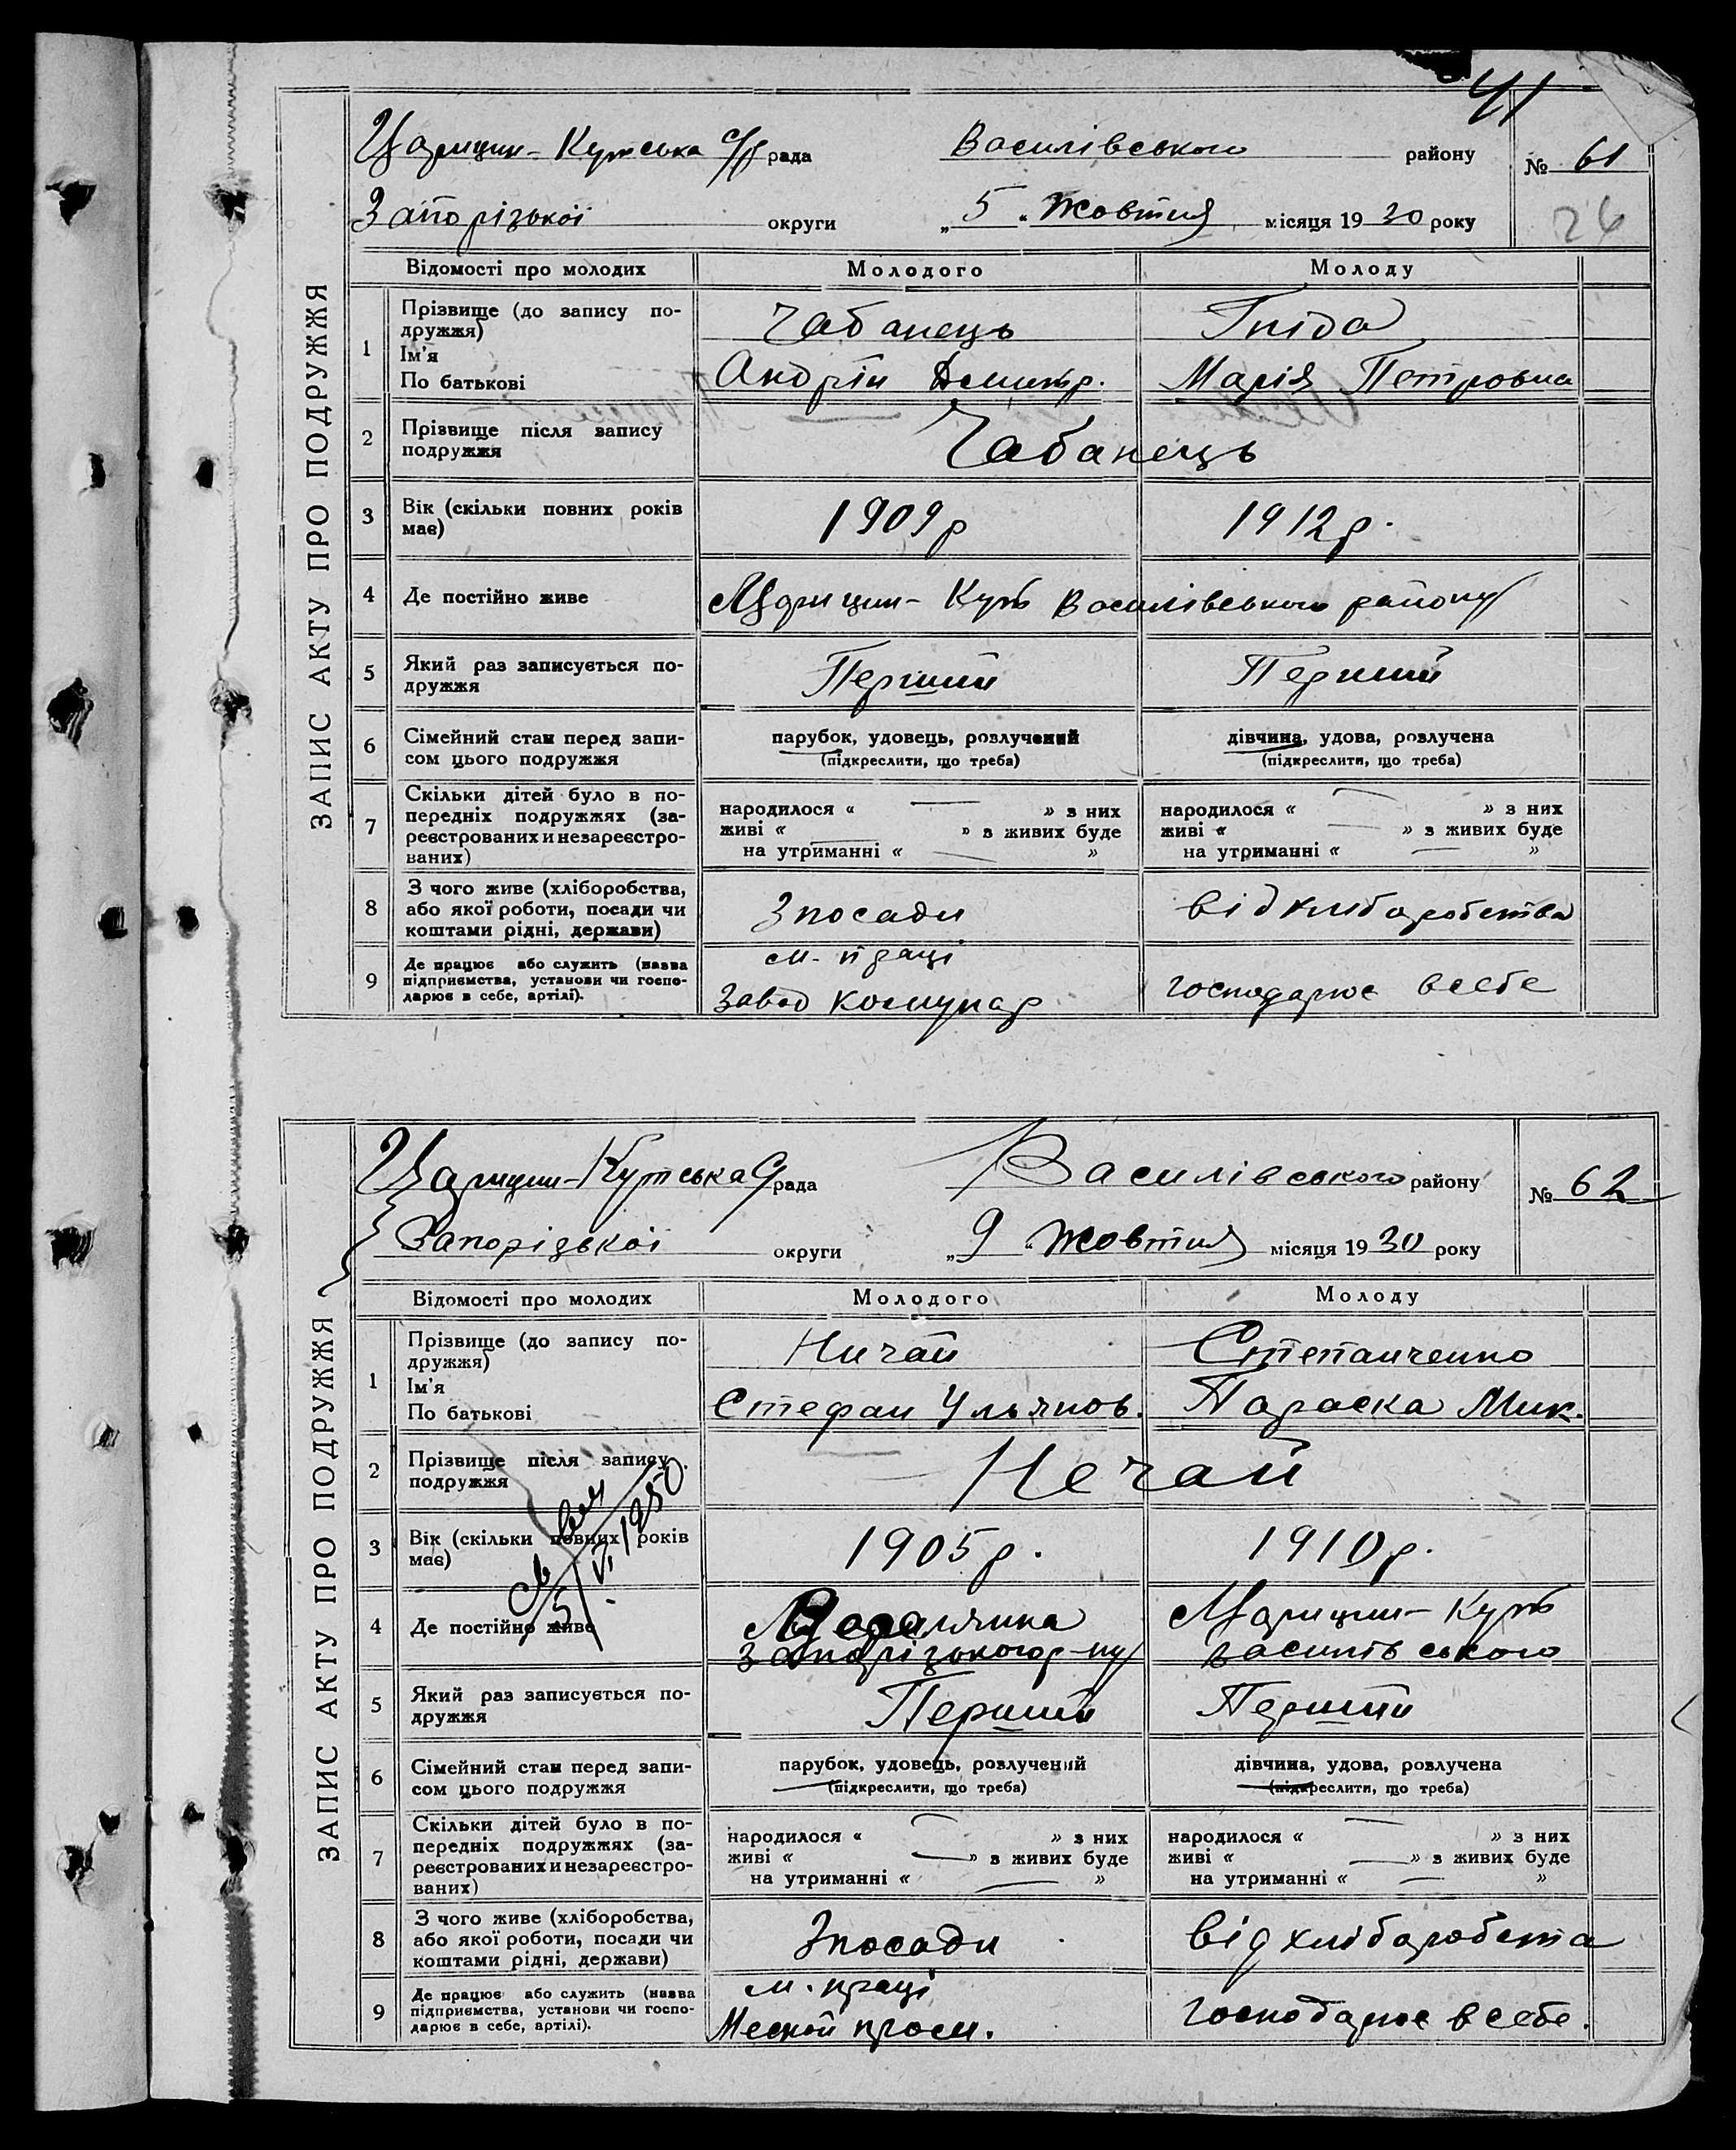 41
Царицин-Кутська с/р рада Василівського району № 61
Запорізької округи „5" жовтня місяця 1930 року
26
ЗАПИС АКТУ ПРО ПОДРУЖЖЯ
Відомості про молодих Молодого Молоду
1 Прізвище (до запису по-
дружжя) Чабанець Гніда
Ім'я
По батькові Андрій Дмитр. Марія Петровна
2 Прізвище після запису
подружжя Чабанець
3 Вік (скільки повних років
має) 1909р 1912р.
4 Де постійно живе Царицин-Кут Василівського району
5 Який раз записується по-
дружжя Перший Перший
6 Сімейний стан перед запи-
сом цього подружжя
парубок, удовець, розлучений дівчина, удова, розлучена
(підкреслити, що треба) (підкреслити, що треба)
7 Скільки дітей було в по-
передніх подружжях (за-
реєстрованих и незареєстро-
ваних)
народилося « — » з них народилося « — » з них
живі « — » з живих буде живі « — » з живих буде
на утриманні « — » на утриманні « — »
8 З чого живе (хліборобства,
або якої роботи, посади чи
коштами рідні, держави) З посади від хліборобства
9 Де працює або служить (назва
підприємства, установи чи госпо-
дарює в себе, артілі).
м. праці
Завод Комунар господарює в себе
Царицин-Кутська с рада Василівського району № 62
Запорізької округи „9" жовтня місяця 1930 року
ЗАПИС АКТУ ПРО ПОДРУЖЖЯ
Відомості про молодих Молодого Молоду
1 Прізвище (до запису по-
дружжя) Ничай Степанченко
Ім'я
По батькові Стефан Ульянов. Параска Мик.
2 Прізвище після запису
подружжя Нечай
3 Вік (скільки повних років
має) 1905р. 1910р.
5/VI 1950
4 Де постійно живе Царицин-Кут
Запорізького р-ну Василівського
5 Який раз записується по-
дружжя Перший Перший
6 Сімейний стан перед запи-
сом цього подружжя
парубок, удовець, розлучений дівчина, удова, розлучена
(підкреслити, що треба) (підкреслити, що треба)
7 Скільки дітей було в по-
передніх подружжях (за-
реєстрованих и незареєстро-
ваних)
народилося « — » з них народилося « — » з них
живі « — » з живих буде живі « — » з живих буде
на утриманні « — » на утриманні « — »
8 З чого живе (хліборобства,
або якої роботи, посади чи
коштами рідні, держави) З посади від хліборобста
9 Де працює або служить (назва
підприємства, установи чи госпо-
дарює в себе, артілі).
м. праці
пром. господарює в себе.